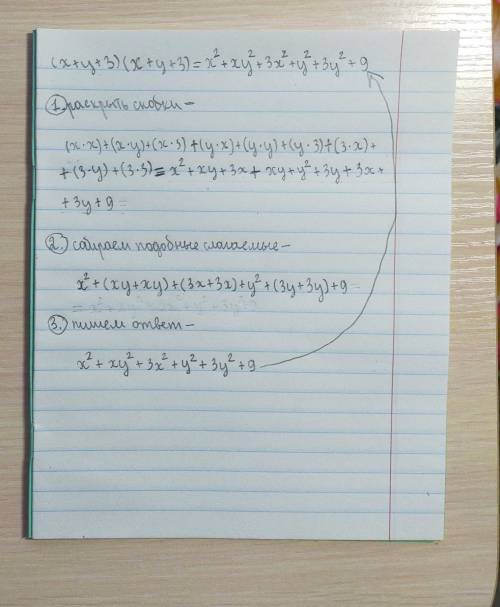 (x+y+3)(x+y+3)=x²+xy²+3x²+y²+3y²+9
1. раскрыть скобки-
(x·x)+(x·y)+(x·3)+(y·x)+(y·y)+(y·3)+(3·x)+
+(3·y)+(3·3)=x²+xy+3x+xy+y²+3y+3x+
+3y+9=
2. собираем подобные слагаемые-
x²+(xy+xy)+(3x+3x)+y²+(3y+3y)+9=
3. пишем ответ-
x²+xy²+3x²+y²+3y²+9